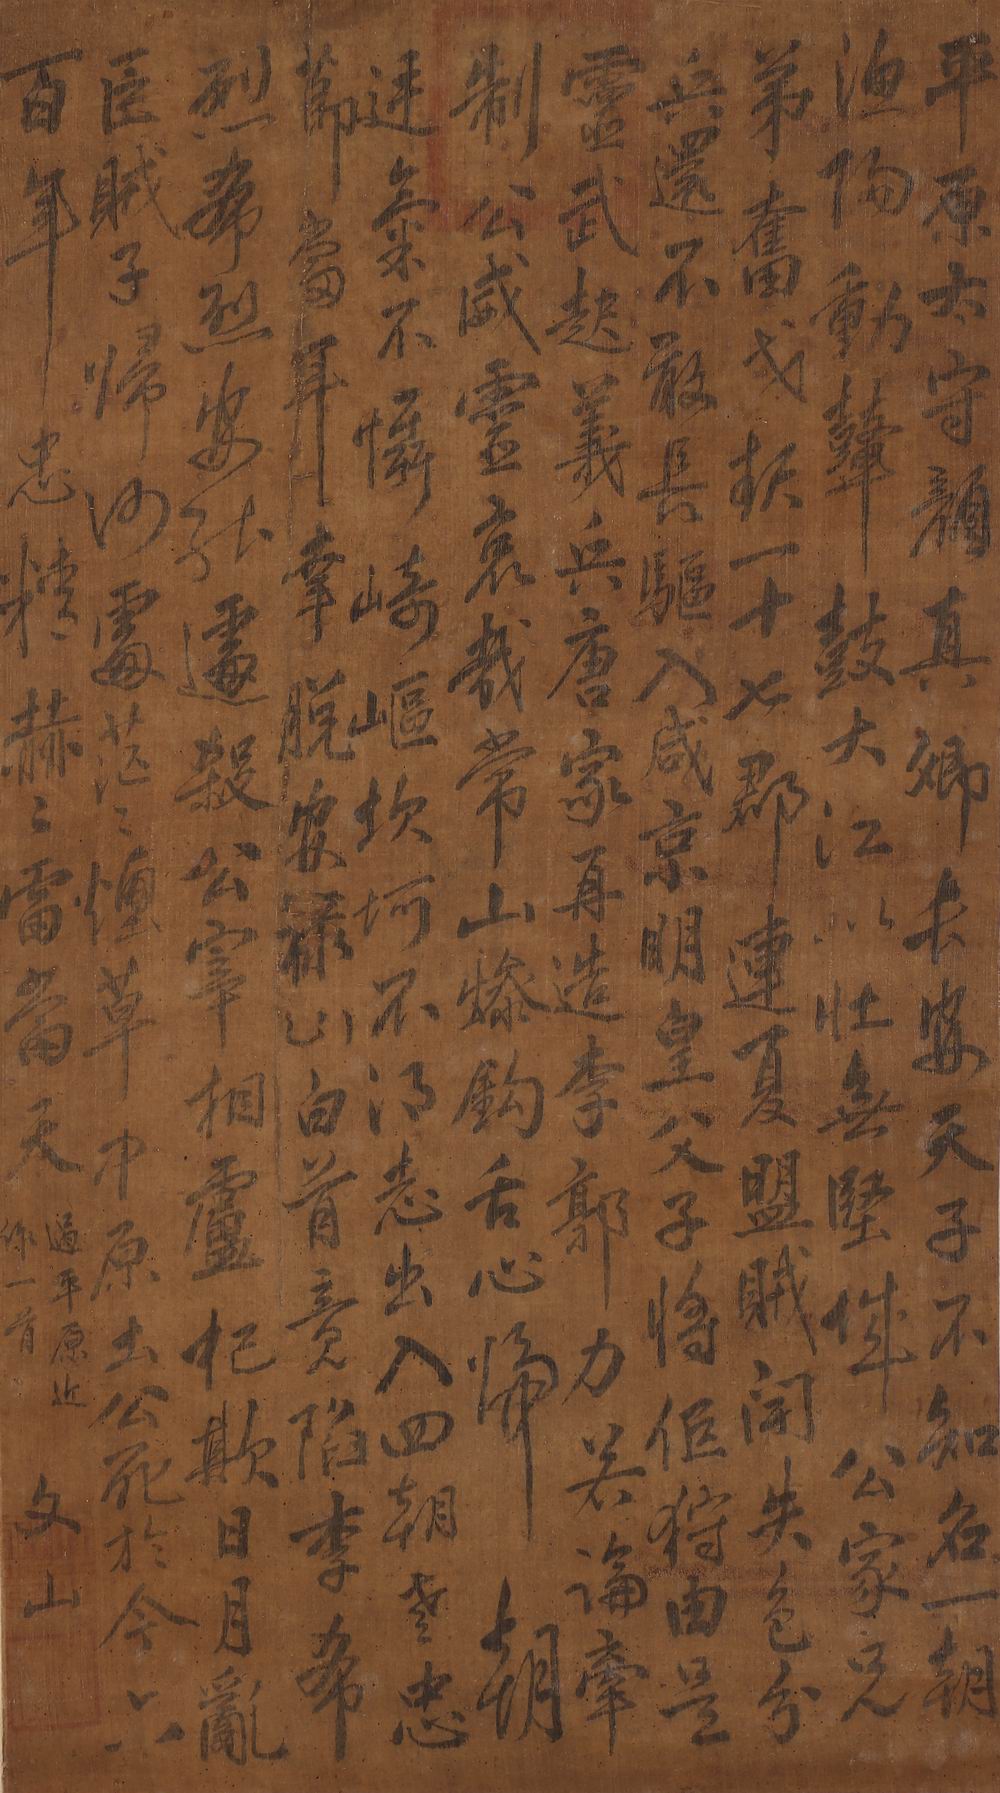 平原太守顏真卿長安天子不知名一朝
漁陽動鼙鼓大江以北無堅城公家兄
弟奮戈起一十七郡連夏盟賊聞失色分
兵還不敢長驅入咸京明皇父子將西狩由是
靈武起義兵唐家再造李郭力若論牽
制公威靈哀哉常山慘鈎舌心歸上朝
廷氣不懾崎嶇坎坷不得志出入四朝老忠
節當年幸脫安祿山白首竟陷李希
烈希烈安能遽殺公宰相盧杞欺日月亂
臣賊子歸何處茫茫煙草中原土公死於今六
百年忠精赫赫雷當天
過平原近
作一首
文山